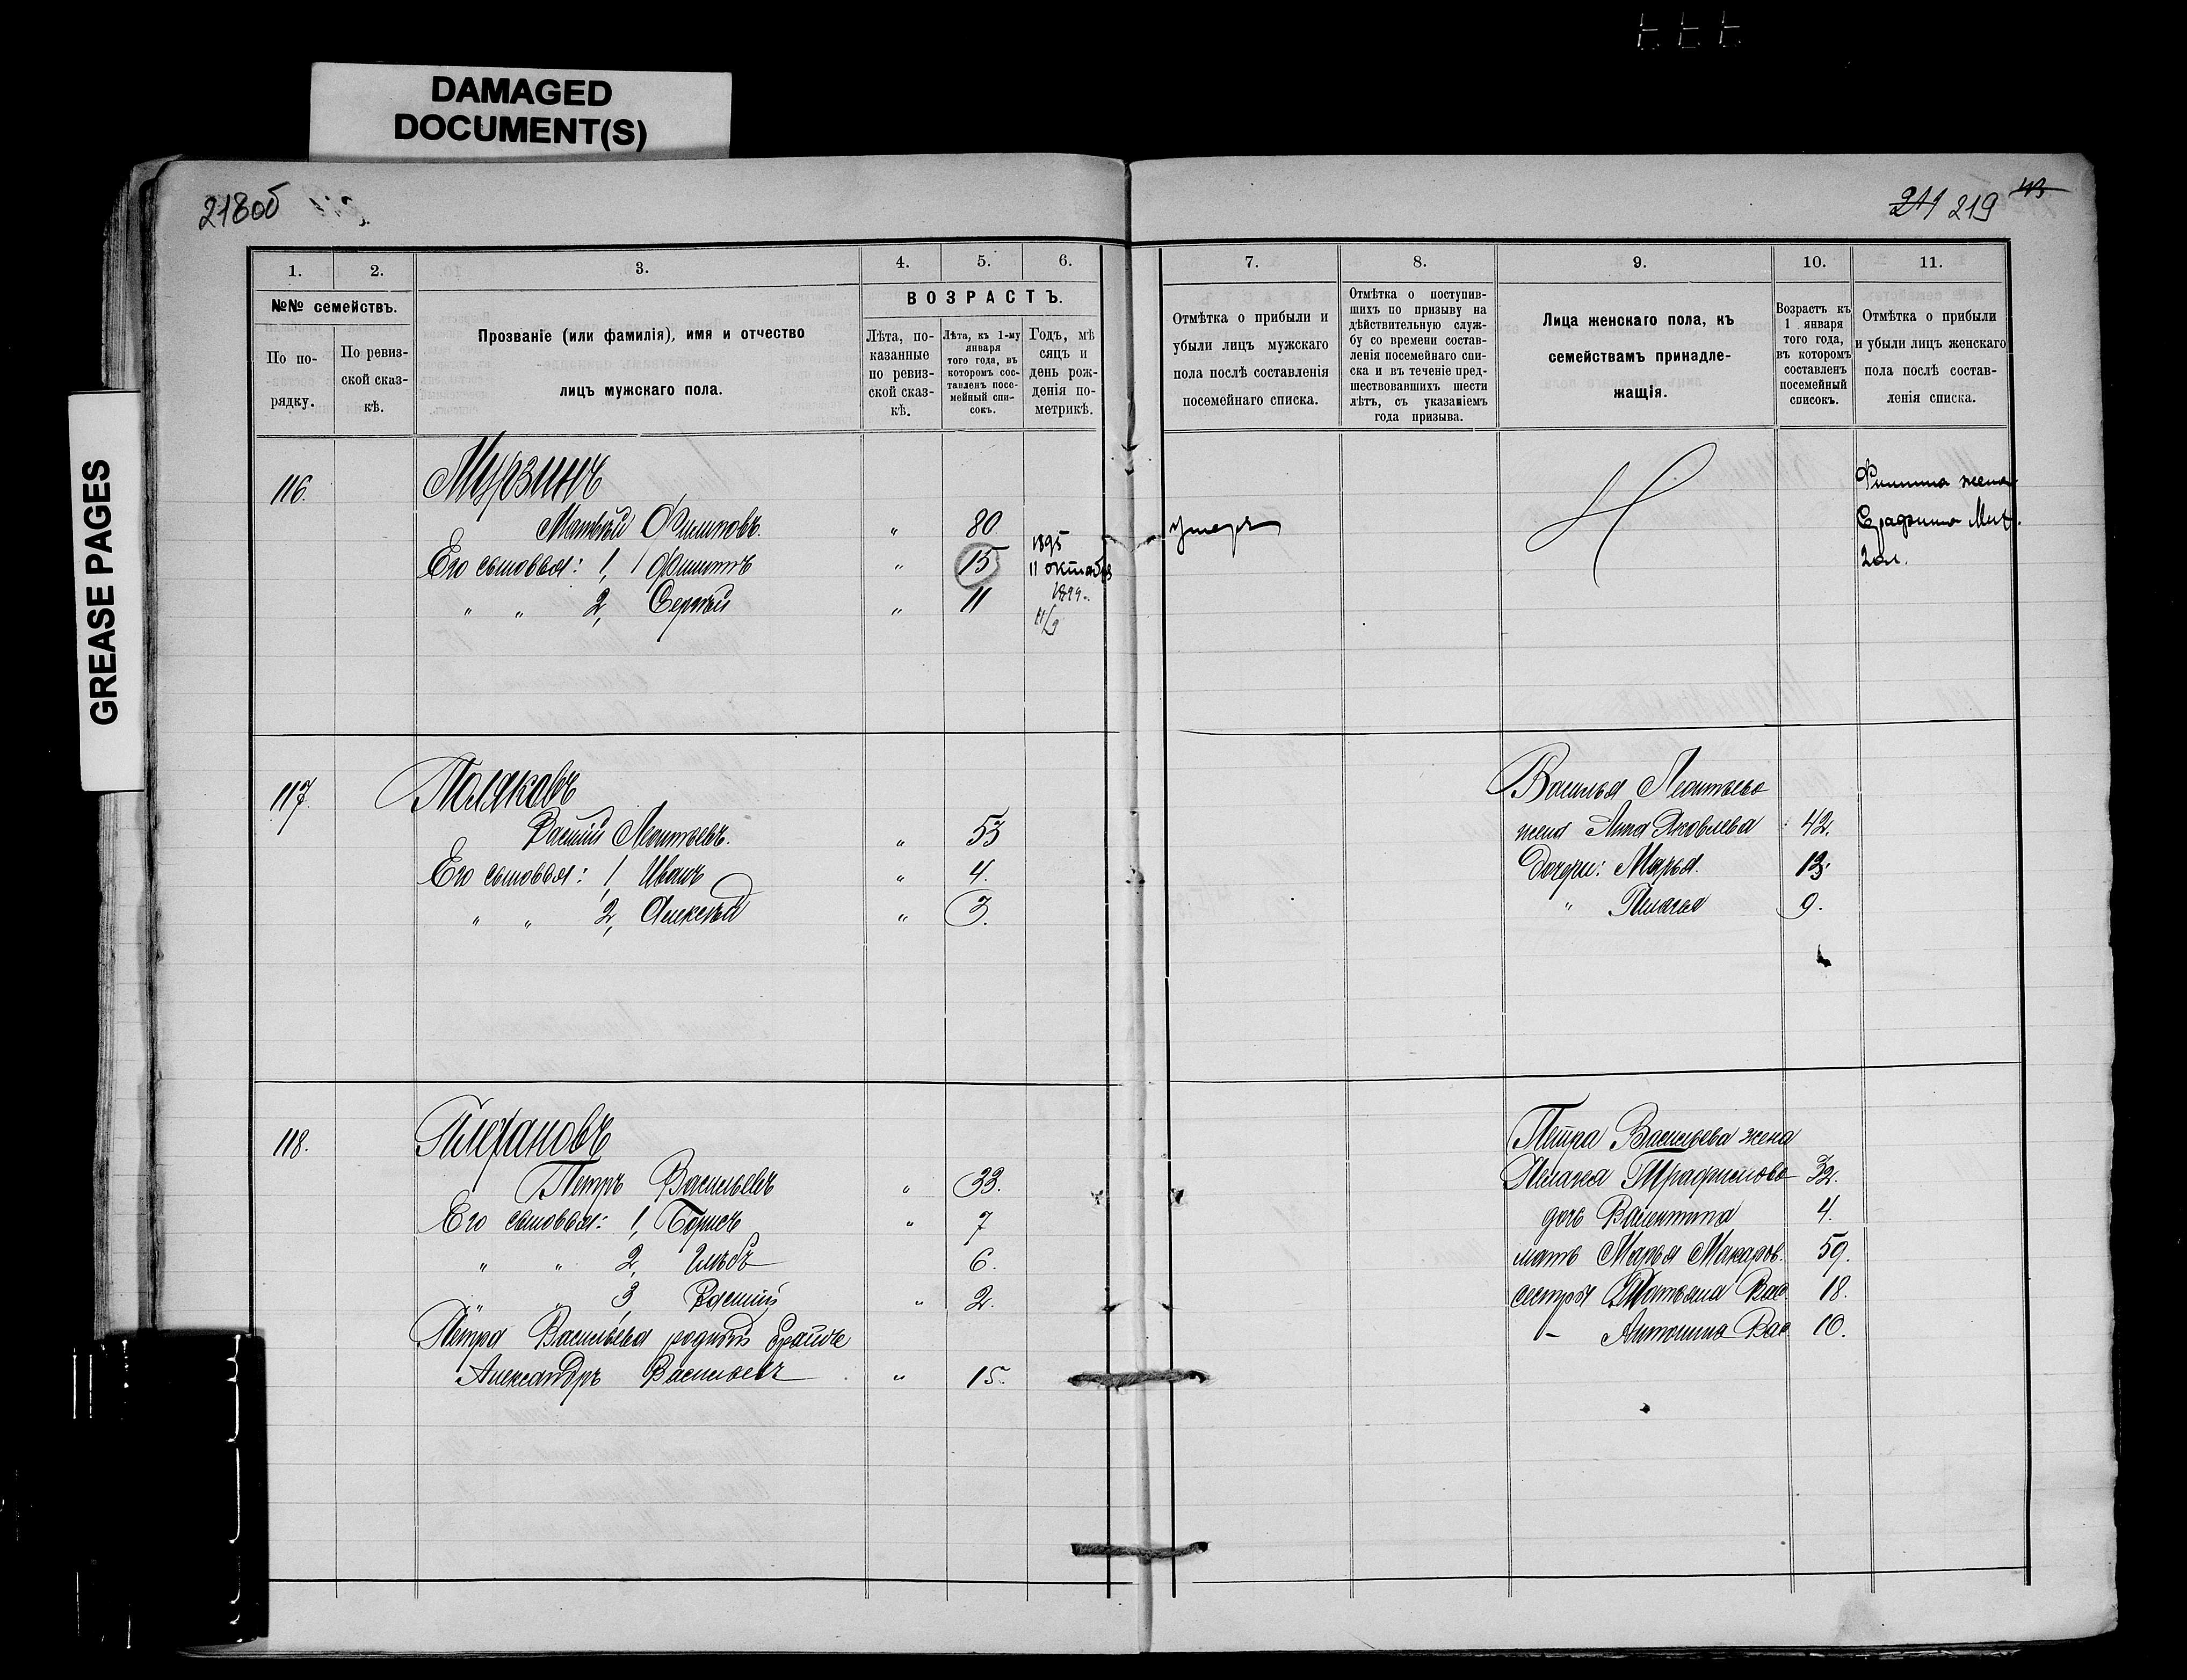 DAMAGED
DOCUMENT(S)
GREASE PAGES
218об
211 219
1. 2. 3. 4. 5. 6. 7. 8. 9. 10. 11.
№№ семействъ.
По по-
рядку.
По ревиз-
ской сказ-
кѣ.
Прозваніе (или фамилія), имя и отчество
лицъ мужскаго пола.
ВОЗРАСТЪ.
Лѣта, по-
казанные
по ревиз-
ской сказ-
кѣ.
Лѣта, къ 1-му
января
того года, въ
которомъ сос-
тавленъ посе-
мейный спи-
сокъ.
Годъ, мѣ
сяцъ и
день рож-
денія по-
метрикѣ.
Отмѣтка о прибыли и
убыли лицъ мужскаго
пола послѣ составленія
посемейнаго списка.
Отмѣтка о поступив-
шихъ по призыву на
дѣйствительную служ-
бу со времени состав-
ленія посемейнаго спи-
ска и въ теченіе пред-
шествовавшихъ шести
лѣтъ, съ указаніемъ
года призыва.
Лица женскаго пола, къ
семействамъ принадле-
жащія.
Возрастъ къ
1 января
того года,
въ которомъ
составленъ
посемейный
списокъ.
Отмѣтка о прибыли
и убыли лицъ женскаго
пола послѣ состав-
ленія списка.
116. Мурзинъ
Матвѣй Филиповъ. " 80. умеръ
Его сыновья: 1, Филиппъ " 15 1895 11 октября
" " 2, Сергѣй " 11 1899. 11/9
Филиппа жена
Серафима
117. Поляковъ
Василій Леонтьевъ. " 53
Его сыновья: 1, Иванъ " 4.
" " 2, Алексѣй " 3.
Василья Леонтьева
жена Анна Яковлева 42.
дочери: Марья. 13.
" Пелагея 9.
118. Плехановъ
Петръ Васильевъ " 33.
Его сыновья: 1, Борисъ " 7
" " 2, Глѣбъ 6.
" " 3, Василій " 2.
Петра Васильева родной братъ
Александръ Васильевъ " 15.
Петра Васильева жена
Пелагея Трафимова 32.
дочь Валентина 4.
мать Марья Макаров. 59.
сестры Татьяна Вас. 18.
– Антонина Вас 10.